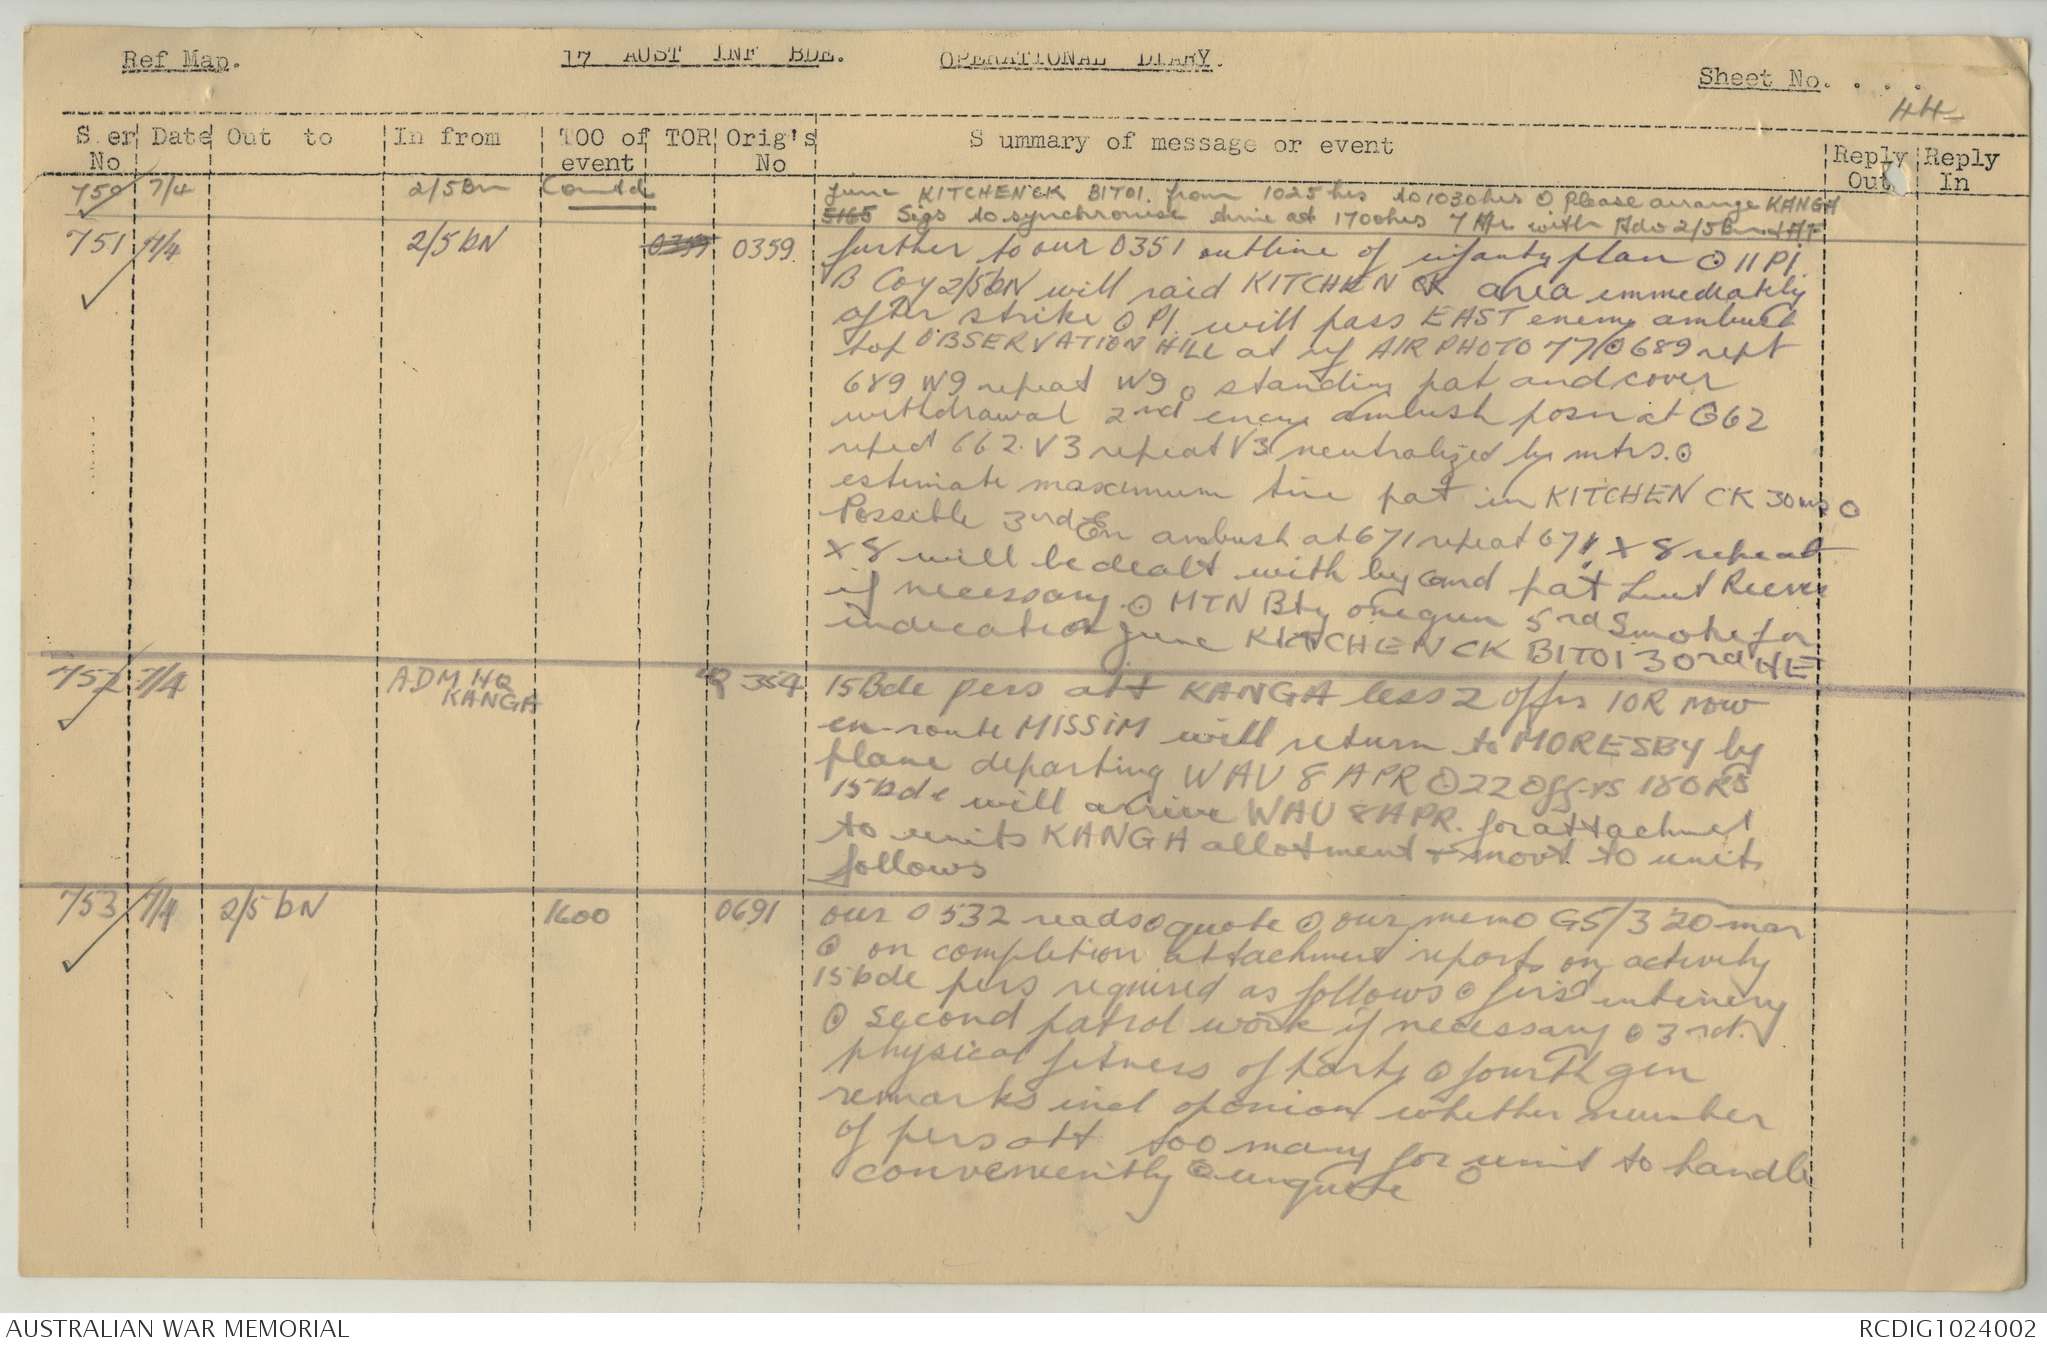 Ref Map. 17 AUST INF BDE. OPERATIONAL DIARY.
Sheet No. . . . .
44
Ser No Date Out to In from TOO of event TOR Orig's No Summary of message or event Reply Out Reply In
750 7/4 2/5 Bn Contd June KITCHEN CK BITOI. from 1025 hrs to 1030 hrs ⊙ Please arrange KANGA
Sigs to synchronise time at 1700 hrs 7 Apr with Adv 2/5 Bn
751 7/4 2/5 bN 0359 0359 further to our 0351 outline of infantry plan ⊙ 11 Pl.
B Coy 2/5 bN will raid KITCHEN CK area immediately
after strike ⊙ Pl. will pass EAST enemy ambush
top OBSERVATION HILL at ref AIR PHOTO 77 ⊙ 689 rept
689 W9 repeat W9 ⊙ standing pat and cover
withdrawal 2nd enemy ambush posn at 662
repeat 662. V3 repeat V3 neutralized by mtrs. ⊙
estimate maximum time pat in KITCHEN CK 30 ms ⊙
Possible 3rd En ambush at 671 repeat 671 X8 repeat
X8 will be dealt with by pat Lieut Reeve
if necessary. ⊙ MTN Bty one gun 5 rd Smoke for
indication June KITCHEN CK BITOI 30 rd HE
752 7/4 ADM HQ KANGA Q 354 15 Bde pers att KANGA less 2 offrs 1OR now
en-route MISSIM will return to MORESBY by
plane departing WAU 8 APR ⊙ 22 Offrs 180 RS
15 bde will arrive WAU 8 APR. for attachmet
to units KANGA allotment & movt to units
follows
753 7/4 2/5 bN 1600 0691 our 0532 reads ⊙ quote ⊙ our memo G5/3 20 mar
⊙ on completion attachment reports on activity
15 bde pers required as follows ⊙ first
⊙ second patrol work if necessary ⊙ 3rd.
physical fitness of party ⊙ fourth gen
remarks incl opinion whether number
of pers att too many for unit to handle
conveniently ⊙ unquote ⊙
AUSTRALIAN WAR MEMORIAL RCDIG1024002